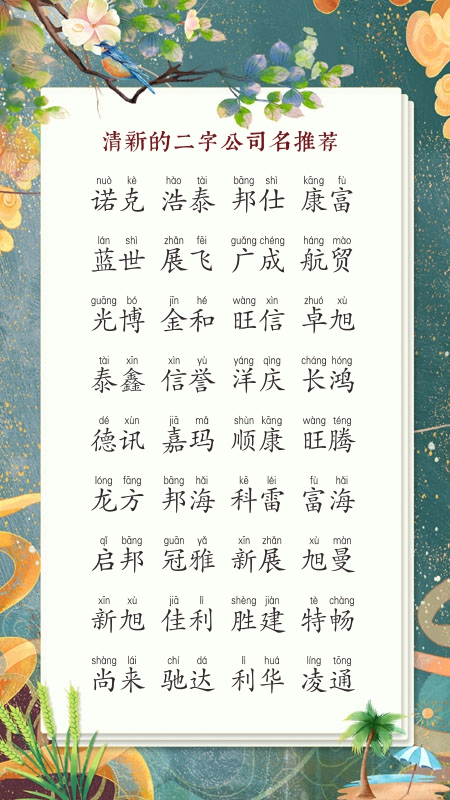 清新的二字公司名推荐
nuò kè hào tài bāng shì kāng fù
诺克 浩泰 邦仕 康富
lán shì zhǎn fēi guǎng chéng háng mào
蓝世 展飞 广成 航贸
guāng bó jīn hé wàng xìn zhuó xù
光博 金和 旺信 卓旭
tài xīn xìn yù yáng qìng cháng hóng
泰鑫 信誉 洋庆 长鸿
dé xùn jiā mǎ shùn kāng wàng téng
德讯 嘉玛 顺康 旺腾
lóng fāng bāng hǎi kē léi fù hǎi
龙方 邦海 科雷 富海
qǐ bāng guān yǎ xīn zhǎn xù màn
启邦 冠雅 新展 旭曼
xīn xù jiā lì shèng jiàn tè chàng
新旭 佳利 胜建 特畅
shàng lái chí dá lì huá líng tōng
尚来 驰达 利华 凌通